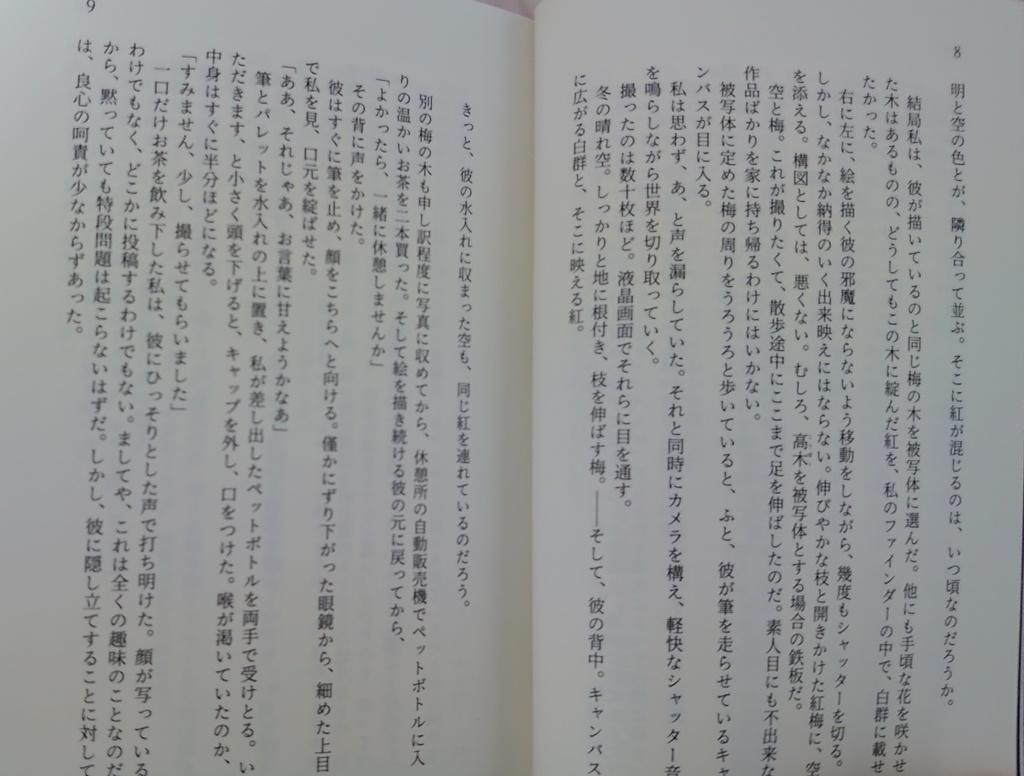 8
明と空の色とが、隣り合って並ぶ。そこに紅が混じるのは、いつ頃なのだろうか。
結局私は、彼が描いているのと同じ梅の木を被写体に選んだ。他にも手頃な花を咲かせ
た木はあるものの、どうしてもこの木に綻んだ紅を、私のファインダーの中で、白群に載せ
たかった。
右に左に、絵を描く彼の邪魔にならないよう移動をしながら、幾度もシャッターを切る。
しかし、なかなか納得のいく出来映えにはならない。伸びやかな枝と開きかけた紅梅に、空
を添える。構図としては、悪くない。むしろ、高木を被写体とする場合の鉄板だ。
空と梅。これが撮りたくて、散歩途中にここまで足を伸ばしたのだ。素人目にも不出来な
作品ばかりを家に持ち帰るわけにはいかない。
被写体に定めた梅の周りをうろうろと歩いていると、ふと、彼が筆を走らせているキャ
ンバスが目に入る。
私は思わず、あ、と声を漏らしていた。それと同時にカメラを構え、軽快なシャッター音
を鳴らしながら世界を切り取っていく。
撮ったのは数十枚ほど。液晶画面でそれらに目を通す。
冬の晴れ空。しっかりと地に根付き、枝を伸ばす梅。――そして、彼の背中。キャンバス
に広がる白群と、そこに映える紅。
9
きっと、彼の水入れに収まった空も、同じ紅を連れているのだろう。
別の梅の木も申し訳程度に写真に収めてから、休憩所の自動販売機でペットボトルに入
りの温かいお茶を二本買った。そして絵を描き続ける彼の元に戻ってから、
その背に声をかけた。
「よかったら、一緒に休憩しませんか」
彼はすぐに筆を止め、顔をこちらへと向ける。僅かにずり下がった眼鏡から、細めた上目
で私を見、口元を綻ばせた。
「ああ、それじゃあ、お言葉に甘えようかなあ」
筆とパレットを水入れの上に置き、私が差し出したペットボトルを両手で受けとる。い
ただきます、と小さく頭を下げると、キャップを外し、口をつけた。喉が渇いていたのか、
中身はすぐに半分ほどになる。
「すみません、少し、撮らせてもらいました」
一口だけお茶を飲み下した私は、彼にひっそりとした声で打ち明けた。顔が写っている
わけでもなく、どこかに投稿するわけでもない。ましてや、これは全くの趣味のことなのだ
から、黙っていても特段問題は起こらないはずだ。しかし、彼に隠し立てすることに対して
は、良心の呵責が少なからずあった。